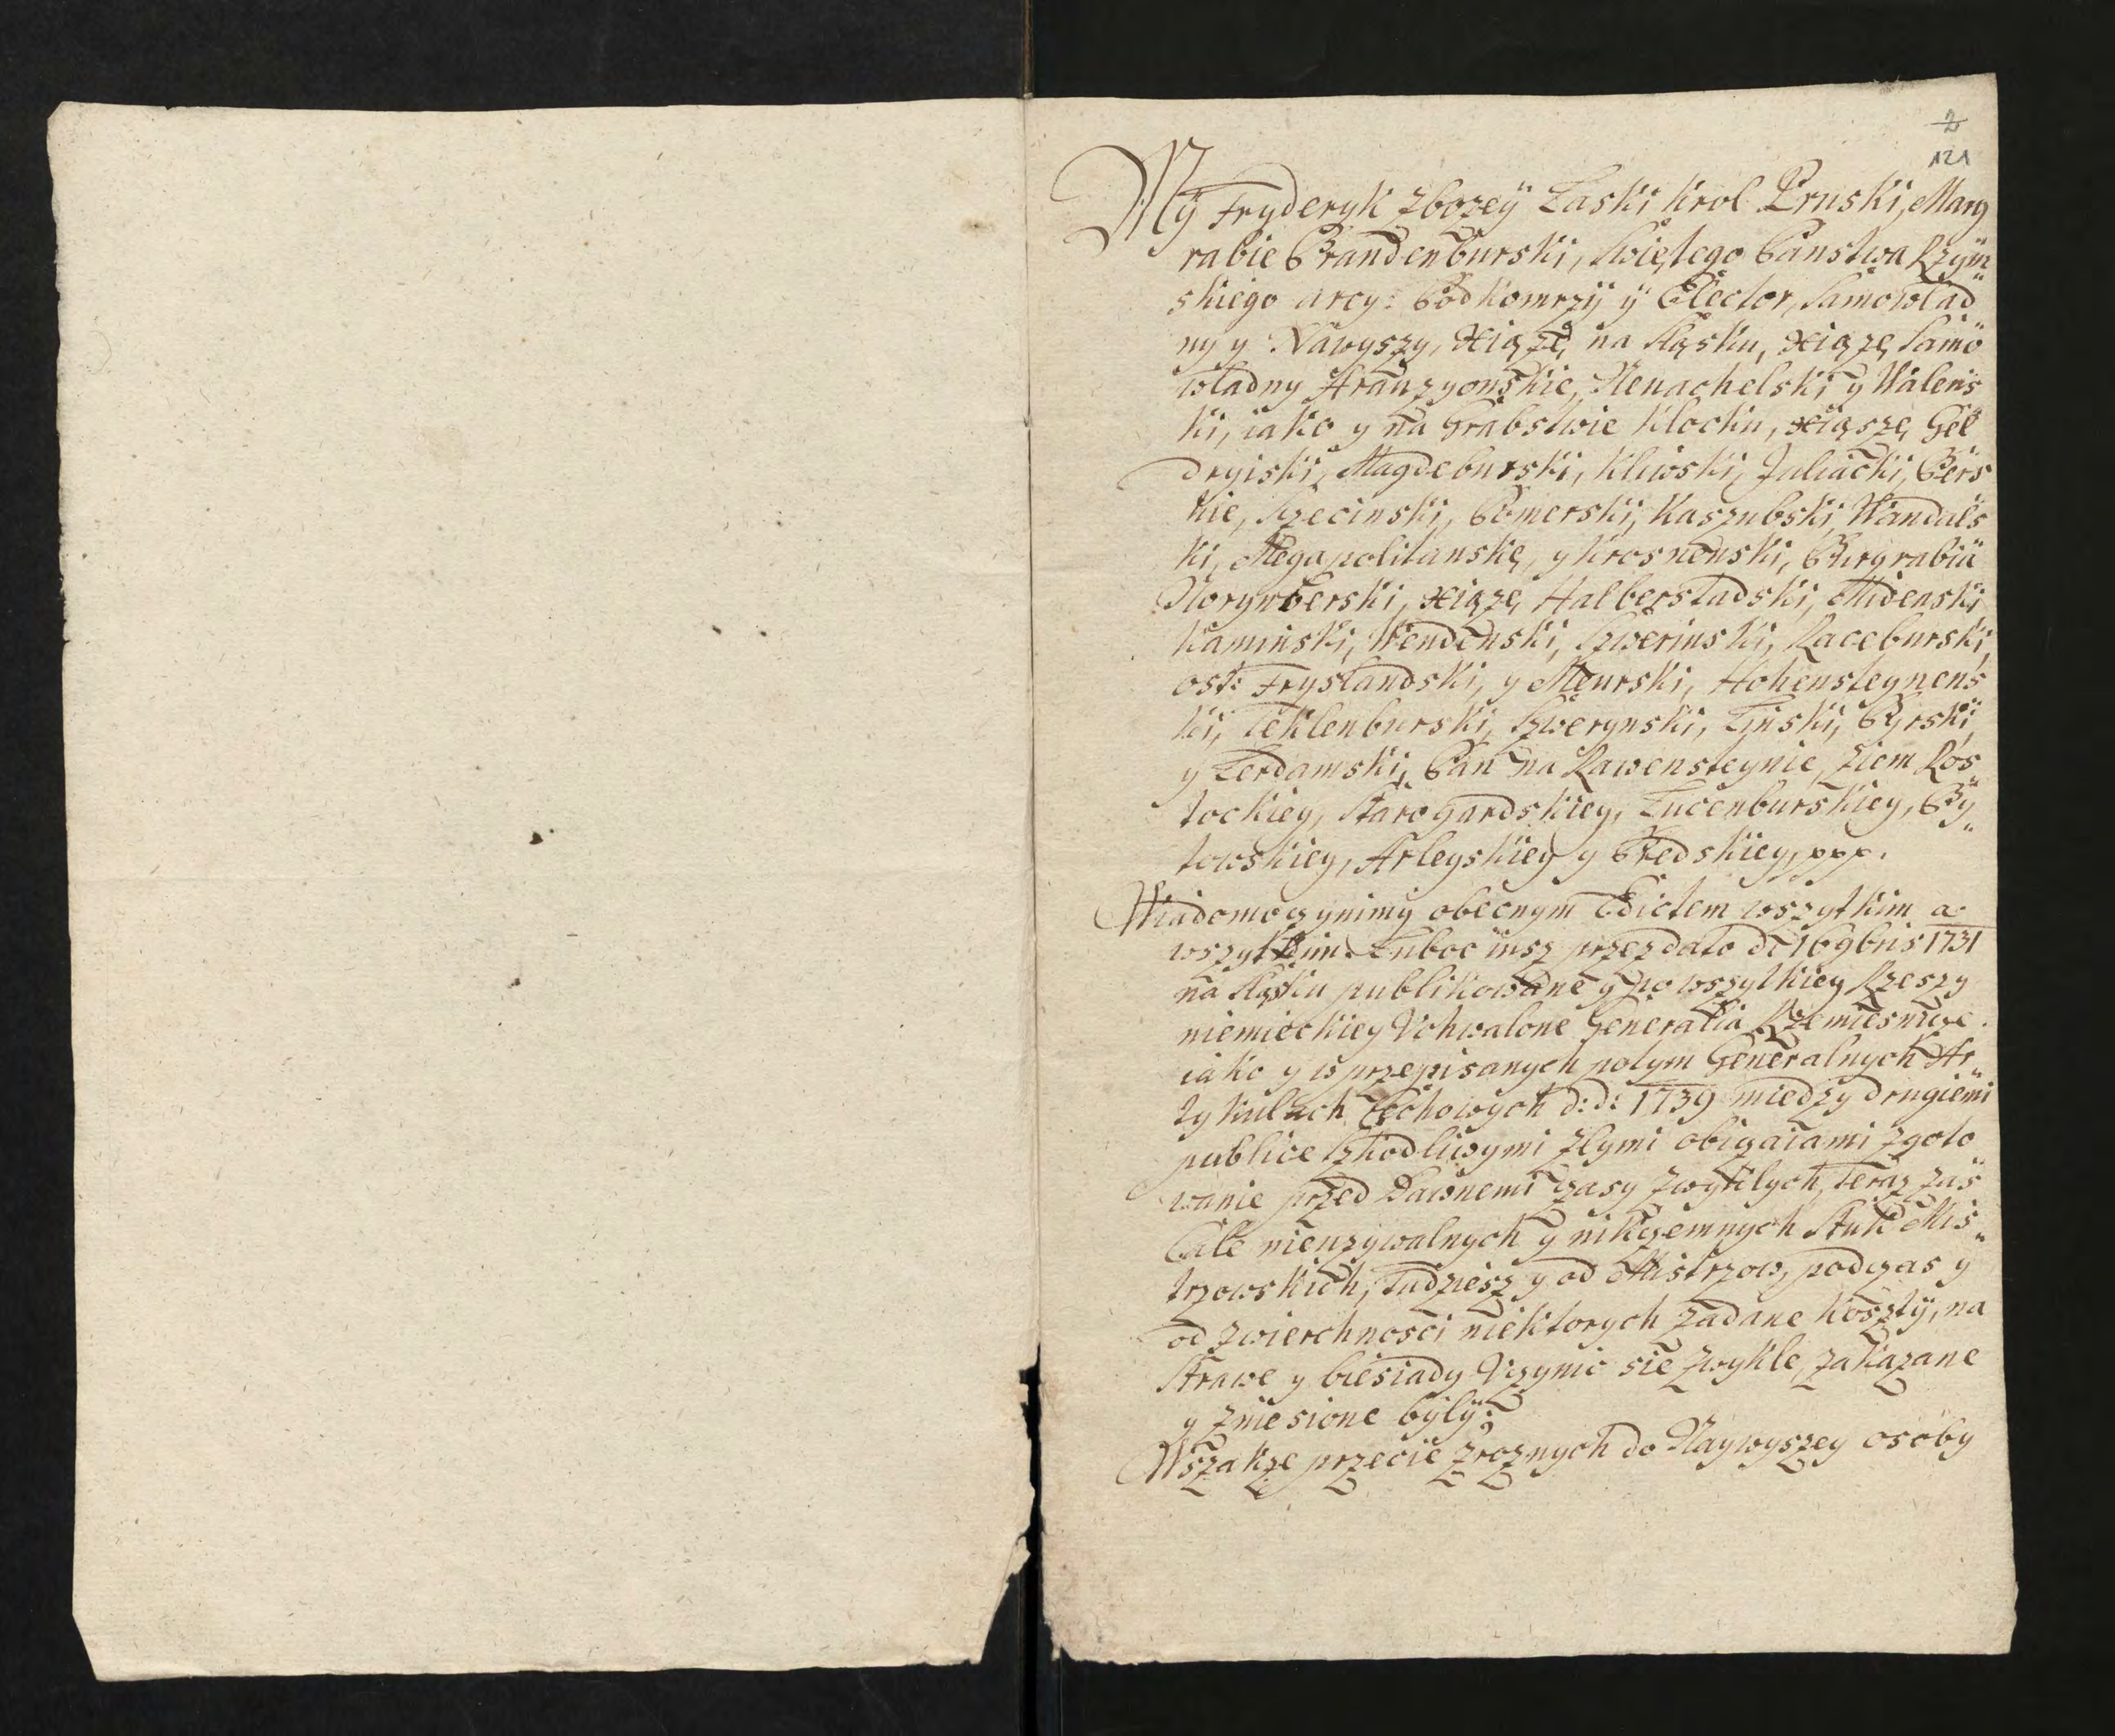 2
121
My Fryderyk z bozey Łaski Krol Pruski, Marg
rabie Brandenburski, Swiętego Panstwa Rzym„
skiego arcy: Podkomrzy y Elector, Samowład
ny y Nawyszy, Xiąze, na Sląsku, Xiąze, Samo
władny Aranzyonskie, Neuachelski y Walens
ki, iako y na Grabstwie Klocku, Xiąsze, Gel
dryiski, Magdeburski, Kliwski, Juliacki, Bers
kie, Szecinski, Pomerski, Kaszubski, Wandals
ki, Megapolitanske, y Krosnenski, Burgrabia
Norynberski, Xiąze, Halberstadski, Midenski
Kaminski, Wendenski, Szwerinski, Raceburski,
ost: Fryslandski, y Meurski, Hohensteynens
ki, Teklenburski, Szwerynski, Lynski, Byrski,
y Lerdamski, Pan na Rawensteynie, Ziem Ros
tockiey, Starogardskiey, Lucenburskiey, By„
towskiey, Arleyskiey y Bredskiey, ppp.
Wiadomo czynimy obecnym Edictem wszytkim a
wszytkim. Luboc insz przez dato de 16 9bris 1731
na Sląsku publikowane y po wszytkiey Rzeszy
niemieckiey Vchwalone Generalia Rzemiesnicze
iako y w przepisanych potym Generalnych Ar„
tykulach Cechowych d: d: 1739 miedzy drugiemi
publice szkodliwymi złymi obiczaiami zgoto
wanie przed Dawnemi czasy zwyklych, teraz zas
Cale nieuzywalnych y nikczemnych Stuk Mis„
trzowskich, Tudziesz y od Mistrzow, podczas y
od Zwierchnosci niektorych Zadane koszty, na
Strawe y biesiady Vczynic sie zwykle, zakazane
y zniesione byly;
Wszakze przecie zroznych do Naywyszey osoby